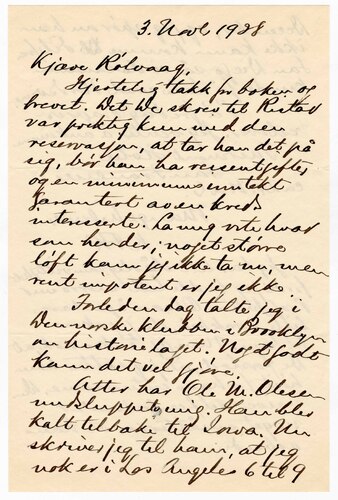 3. Novb 1928
Kjære Rölvaag,
Hjertelig takk for boken og
brevet. Det De skrev til Ristad
var prektig kun med den
reservasjon, at tar han det på
sig, bör han ha reiseutgifter
og en minimums inntekt
garantert av en kreds
interesserte. La mig vite hvad
som hender; noget större
löft kann jeg ikke ta nu, men
rent impotent er jeg ikke.
Forleden dag talte jeg i
Den norske klubben i Brooklyn
om historielaget. Noget godt
kann det vel gjöre.
Atter har Ole M. Olesen
undsluppet mig. Han blev
kalt tilbake til Iowa. Nu
skriver jeg til ham, at jeg
nok er i Los Angeles 6 til 9